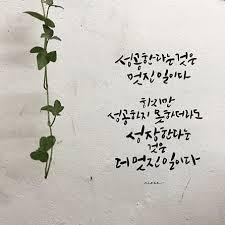 성공한다는것은
멋진 일이다
하지만
성공하지 못하더라도
성장한다는
것은
더 멋진 일이다